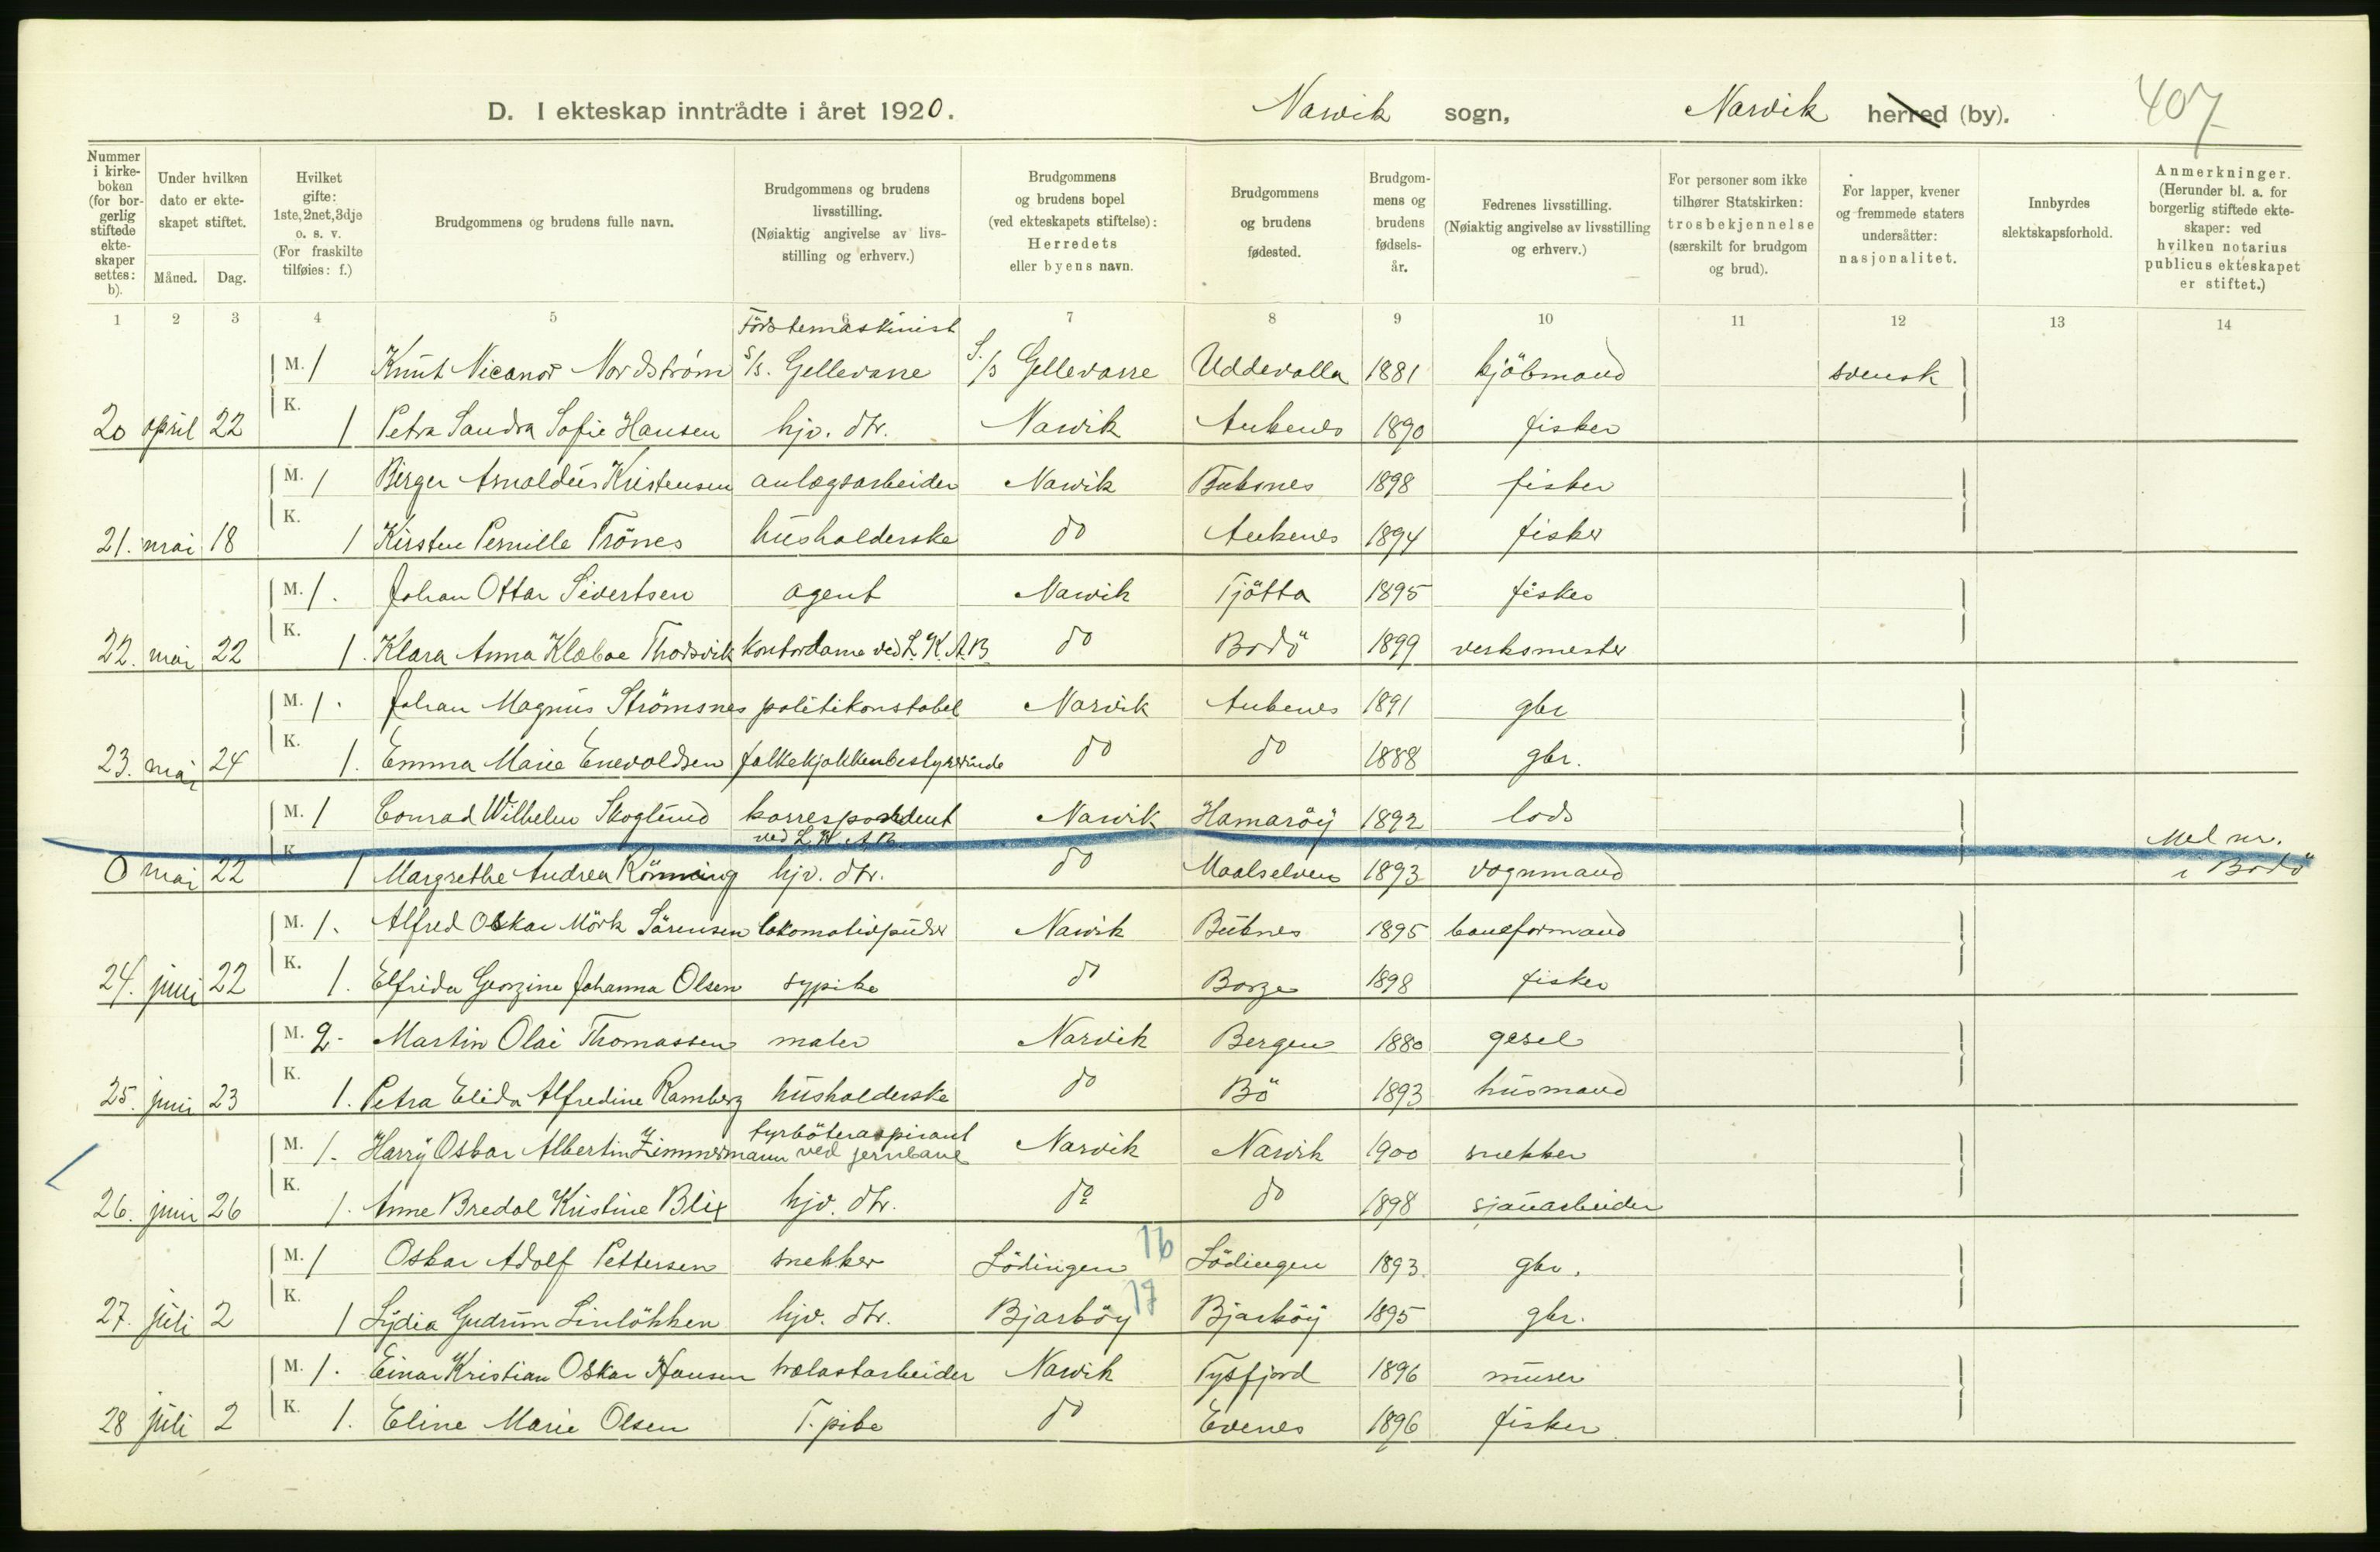 D. I ekteskap inntrådte i året 1920. Narvik sogn, Narvik herred (by). 407
Nummer i kirkeboken (for borgerlig stiftede ekteskaper settes: b).
Under hvilken dato er ekteskapet stiftet.
Måned. Dag.
Hvilket gifte: 1ste, 2net, 3dje o. s. v. (For fraskilte tilføies: f.)
Brudgommens og brudens fulle navn.
Brudgommens og brudens livsstilling. (Nøiaktig angivelse av livsstilling og erhverv.)
Brudgommens og brudens bopel (ved ekteskapets stiftelse): Herredets eller byens navn.
Brudgommens og brudens fødested.
Brudgommens og brudens fødselsår.
Fedrenes livsstilling. (Nøiaktig angivelse av livsstilling og erhverv.)
For personer som ikke tilhører Statskirken: trosbekjennelse (særskilt for brudgom og brud).
For lapper, kvener og fremmede staters undersåtter: nasjonalitet.
Innbyrdes slektskapsforhold.
Anmerkninger. (Herunder bl. a. for borgerlig stiftede ekteskaper: ved hvilken notarius publicus ekteskapet er stiftet.)
1 2 3 4 5 6 7 8 9 10 11 12 13 14
Förstemaskinist
M. 1 Knut Nicanor Nordström S/s. Gellevarre S./s Gellevarre Uddevalla 1881 kjöbmand svensk
20 april 22 K. 1 Petra Sandra Sofie Hansen hjv. dtr. Narvik Ankenes 1890 fisker
M. 1 Birger Arnoldus Kristensen anlægsarbeider Narvik Buksnes 1898 fisker
21. mai 18 K. 1 Kirsten Pernille Trönes husholderske do Ankenes 1894 fisker
M. 1. Johan Ottar Sivertsen agent Narvik Tjötta 1895 fisker
22. mai 22 K. 1. Klara Anna Klæboe Thorsvik kontordame ved L. K. A. B do Bodö 1899 verksmester
M. 1. Johan Magnus Strömsnes politikonstabel Narvik Ankenes 1891 gbr
23. mai 24 K. 1. Emma Marie Enevoldsen folkekjøkkenbestyrerinde do do 1888 gbr.
M. 1 Conrad Wilhelm Skoglund korrespondent Narvik Hamaröy 1892 lods
ved L K A B. Mel nr.
0 mai 22 K. 1 Margrethe Andrea Rönning hjv. dtr. do Maalselven 1893 vognmand i Bodö
M. 1. Alfred Oskar Mörk Sörensen lokomotivpudser Narvik Buknes 1895 baneformand
24. juni 22 K. 1. Elfrida Georgine Johanna Olsen sypike do Borge 1898 fisker
M. 2. Martin Olai Thomassen maler Narvik Bergen 1880 gesel
25. juni 23 K. 1. Petra Elida Alfredine Ramberg husholderske do Bö 1893 husmand
fyrböteraspirant
M. 1. Harry Oskar Albertin Zimmermann ved jernbane Narvik Narvik 1900 snekker
26. juni 26 K. 1. Anne Bredal Kristine Blix hjv. dtr. do do 1898 sjauarbeider
16
M. 1 Oskar Adolf Pettersen snekker Lödingen Lödingen 1893. gbr.
17
27. juli 2 K. 1 Lydia Gudrun Linlökken hjv. dtr. Bjarköy Bjarköy 1895 gbr.
M. 1. Einar Kristian Oskar Hansen trælastarbeider Narvik Tysfjord 1896 murer
28 juli 2 K. 1. Eline Marie Olsen T. pike do Evenes 1896 fisker